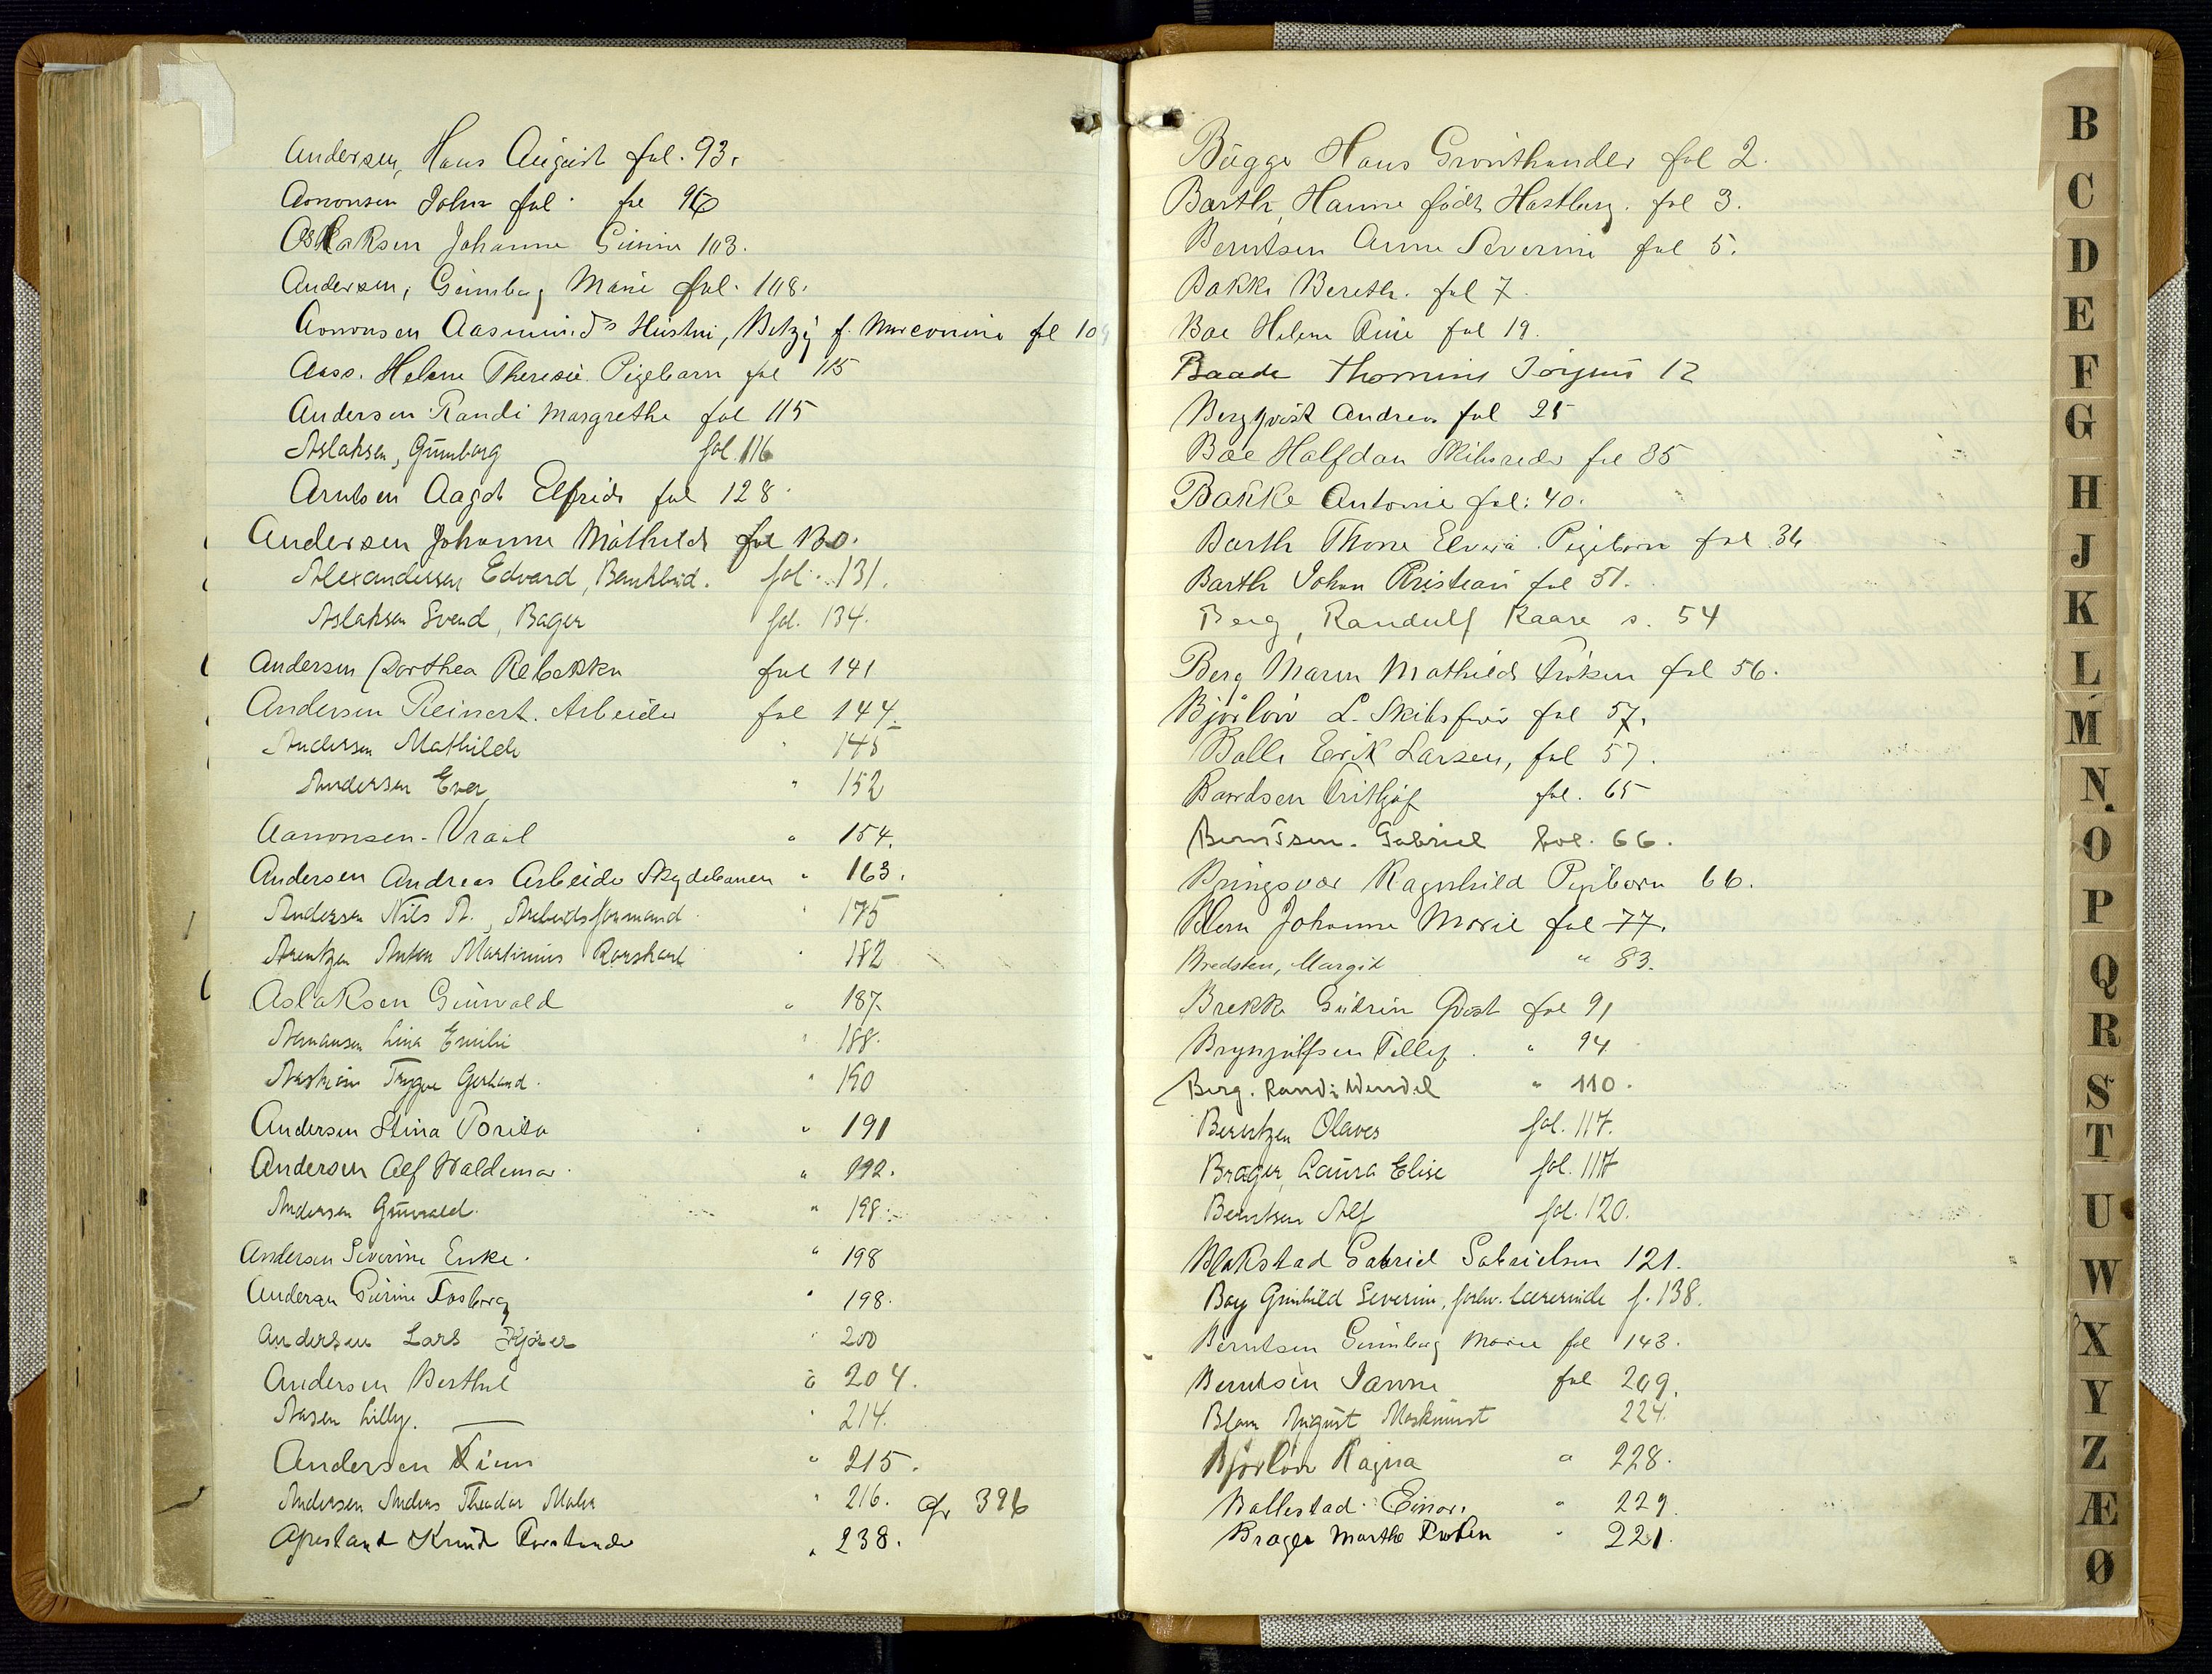 Andersen, Hans August fol. 93.
Aanonsen John fol. fol 96
Aslaksen Johanne Gunine 103.
Andersen, Gunborg Marie fol. 108.
Aanonsen Aasmund's Hustru, Betzy f. fol 109
Aass. Helene Theresie Pigebarn fol 115
Andersen Randi Margrethe fol 115
Aslaksen, Gunborg fol. 116
Arntsen Aagot Elfrida fol 128.
Andersen Johanne Mathilde fol 130.
Alexandersen Edvard, Bankbud. fol. 131.
Aslaksen Svend, Bager fol. 134.
Andersen Dorthea Rebekka fol 141
Andersen Reinert. Arbeider fol 144.
Andersen Mathilde " 145
Andersen Ever " 152
Aanonsen - Vraal " 154.
Andersen Andreas Arbeider Skydebanen " 163.
Andersen Nils A., Arbeidsformand " 175
Arentzen Anton Martinius " 182
Aslaksen Gunvald " 187
Lina Emilie " 188.
Trygve Gerhard. " 190
Andersen Stina Torita " 191
Andersen Alf Valdemar. " 192.
Andersen Gunvald. " 198.
Andersen Severine Enke. " 198
Andersen Gurine Tosborg " 198.
Andersen Lars Kjær " 200
Andersen Berthe " 204.
Aasen Lilly. " 214.
Andersen Finn " 215.
Andersen Anders Theodor Maler " 216. cfr 396
Apesland Knud Forstander " 238.
Bugge Hans Grosithandler fol 2.
Barth, Hanne født Hastberg. fol 3.
Berntsen Anne Severine fol 5.
Bakke Bereth. fol 7.
Boe Helene fol 19.
Baade Thomine Jørgine 12
Bergqvist Andreas fol 25
Boe Halfdan Skibsreder fol 35
Bakke Antonie fol: 40.
Barth Thora Elvira Pigebarn fol 36
Barth Johan Kristian fol 51.
Berg, Randulf Kaare s. 54
Berg Maren Mathilde Frøken fol 56.
Bjørlow L. Skibsfører fol 57.
Balle Erik Larsen, fol 57.
Baardsen Fritjof fol. 65
Berntsen. Gabriel fol. 66.
Bringsvor Ragnhild Pigebarn 66.
Blom Johanne Marie fol 77.
Bredsten, Margit " 83.
Brekke Gudrun Qvist fol 91
Brynjulfsen Tellef. " 94
Berg. Randi Wendel " 110.
Berntzen Olaves fol. 117.
Brager, Laura Elise fol. 117
Berntsen Alf fol. 120.
Blakstad Gabriel Gabrielsen 121.
Boy Gunhild Severine, forhv. Lærerinde f. 138.
Berntsen Gunborg Marie fol 143.
Berntsen Janna fol 209.
Blom August Maskinist 224.
Bjørlow Ragna " 228.
Ballestad. Einar. " 229.
Brager Martha Frøken " 221.
B
C
D
E
F
G
H
J
K
L
M
N
O
P
Q
R
S
T
U
W
X
Y
Z
Æ
Ø